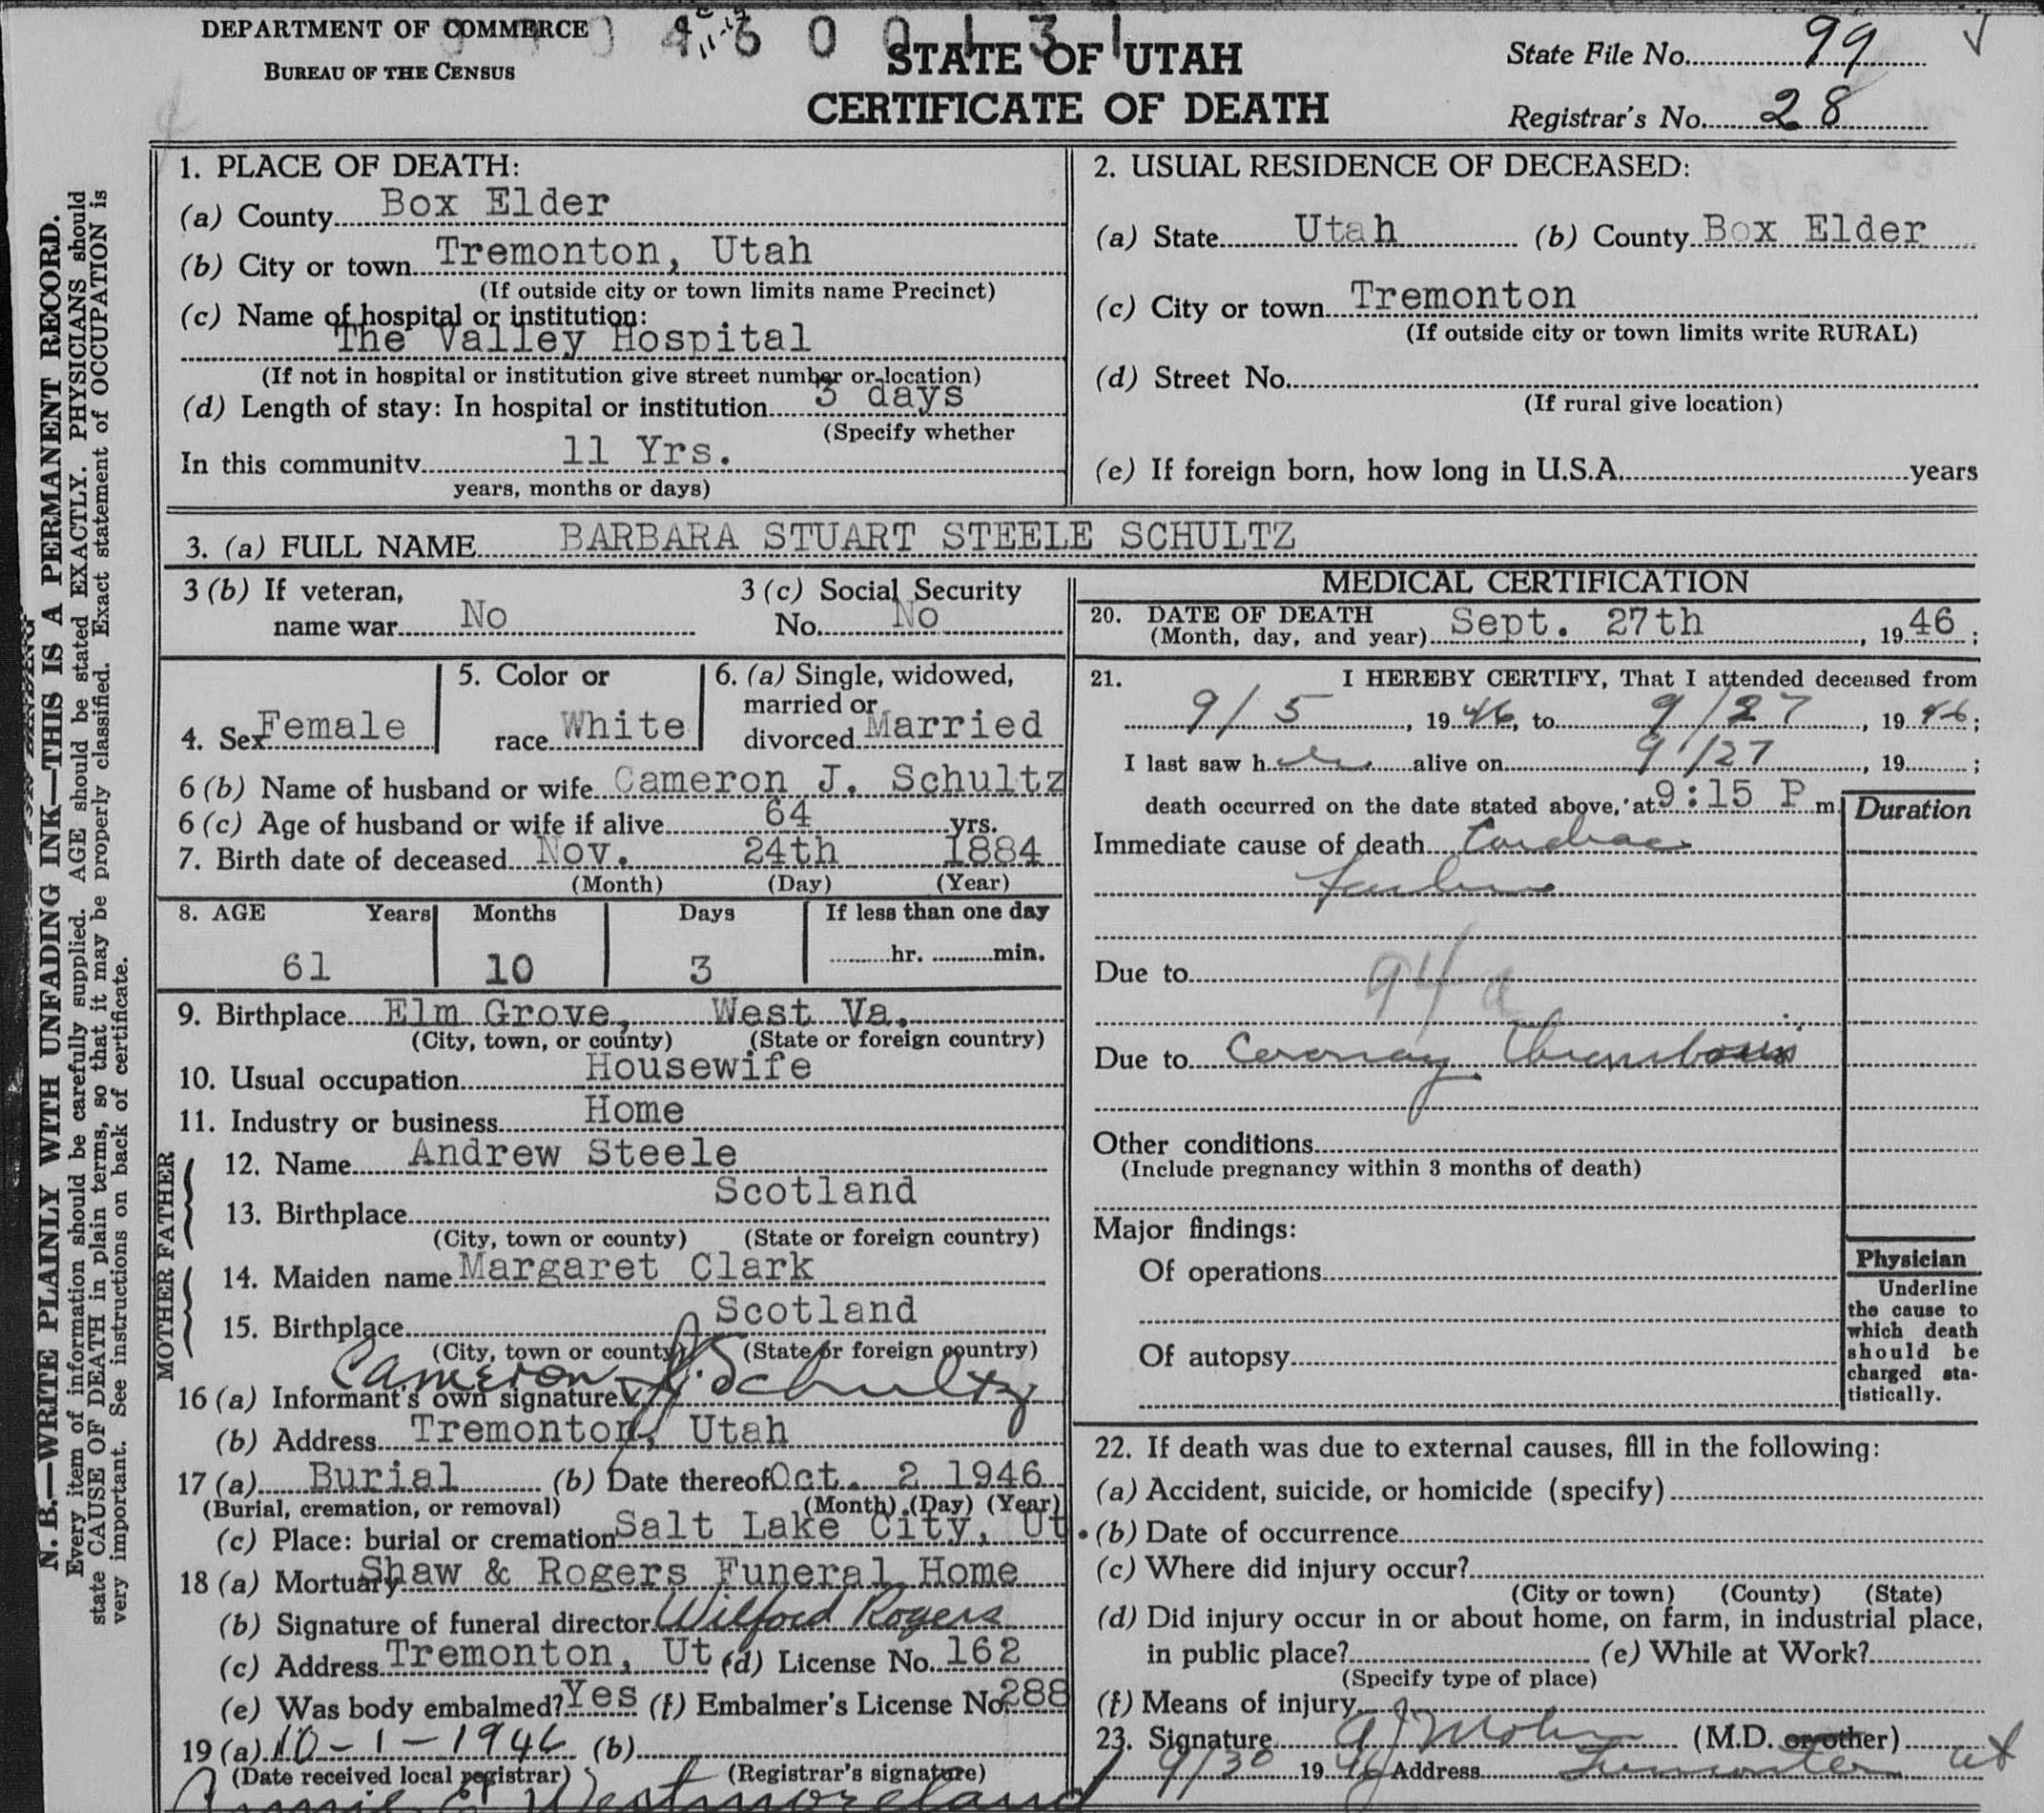 DEPARTMENT OF COMMERCE
BUREAU OF THE CENSUS
STATE OF UTAH
CERTIFICATE OF DEATH
State File No. 99
Registrar's No. 28
N. B.—WRITE PLAINLY WITH UNFADING INK—THIS IS A PERMANENT RECORD.
Every item of information should be carefully supplied. AGE should be stated EXACTLY. PHYSICIANS should
state CAUSE OF DEATH in plain terms, so that it may be properly classified. Exact statement of OCCUPATION is
very important. See instructions on back of certificate.
1. PLACE OF DEATH:
(a) County Box Elder
(b) City or town Tremonton, Utah
(If outside city or town limits name Precinct)
(c) Name of hospital or institution:
The Valley Hospital
(If not in hospital or institution give street number or location)
(d) Length of stay: In hospital or institution 3 days
(Specify whether
In this community 11 Yrs.
years, months or days)
2. USUAL RESIDENCE OF DECEASED:
(a) State Utah (b) County Box Elder
(c) City or town Tremonton
(If outside city or town limits write RURAL)
(d) Street No.
(If rural give location)
(e) If foreign born, how long in U.S.A. years
3. (a) FULL NAME BARBARA STUART STEELE SCHULTZ
3 (b) If veteran,
name war No
3 (c) Social Security
No. No
4. Sex Female
5. Color or
race White
6. (a) Single, widowed,
married or
divorced Married
6 (b) Name of husband or wife Cameron J. Schultz
6 (c) Age of husband or wife if alive 64 yrs.
7. Birth date of deceased Nov. 24th 1884
(Month) (Day) (Year)
8. AGE Years Months Days If less than one day
61 10 3 hr. min.
9. Birthplace Elm Grove, West Va.
(City, town, or county) (State or foreign country)
10. Usual occupation Housewife
11. Industry or business Home
FATHER
12. Name Andrew Steele
13. Birthplace Scotland
(City, town or county) (State or foreign country)
MOTHER
14. Maiden name Margaret Clark
15. Birthplace Scotland
(City, town or county) (State or foreign country)
16 (a) Informant's own signature Cameron J. Schultz
(b) Address Tremonton, Utah
17 (a) Burial (b) Date thereof Oct. 2 1946
(Burial, cremation, or removal) (Month) (Day) (Year)
(c) Place: burial or cremation Salt Lake City, Ut.
18 (a) Mortuary Shaw & Rogers Funeral Home
(b) Signature of funeral director Wilford Rogers
(c) Address Tremonton, Ut (d) License No. 162
(e) Was body embalmed? Yes (f) Embalmer's License No. 288
19 (a) 10-1-1946 (b)
(Date received local registrar) (Registrar's signature)
Westmoreland
MEDICAL CERTIFICATION
20. DATE OF DEATH
(Month, day, and year) Sept. 27th, 1946;
21. I HEREBY CERTIFY, That I attended deceased from
9/5, 1946, to 9/27, 1946;
I last saw her alive on 9/27, 19 ;
death occurred on the date stated above, at 9:15 P m.
Duration
Immediate cause of death Cardiac
failure
Due to 94a
Due to Coronary Thrombosis
Other conditions
(Include pregnancy within 3 months of death)
Major findings:
Of operations
Of autopsy
Physician
Underline
the cause to
which death
should be
charged sta-
tistically.
22. If death was due to external causes, fill in the following:
(a) Accident, suicide, or homicide (specify)
(b) Date of occurrence
(c) Where did injury occur?
(City or town) (County) (State)
(d) Did injury occur in or about home, on farm, in industrial place,
in public place? (e) While at Work?
(Specify type of place)
(f) Means of injury
23. Signature (M.D. or other)
9/30 1946 Address Tremonton Ut